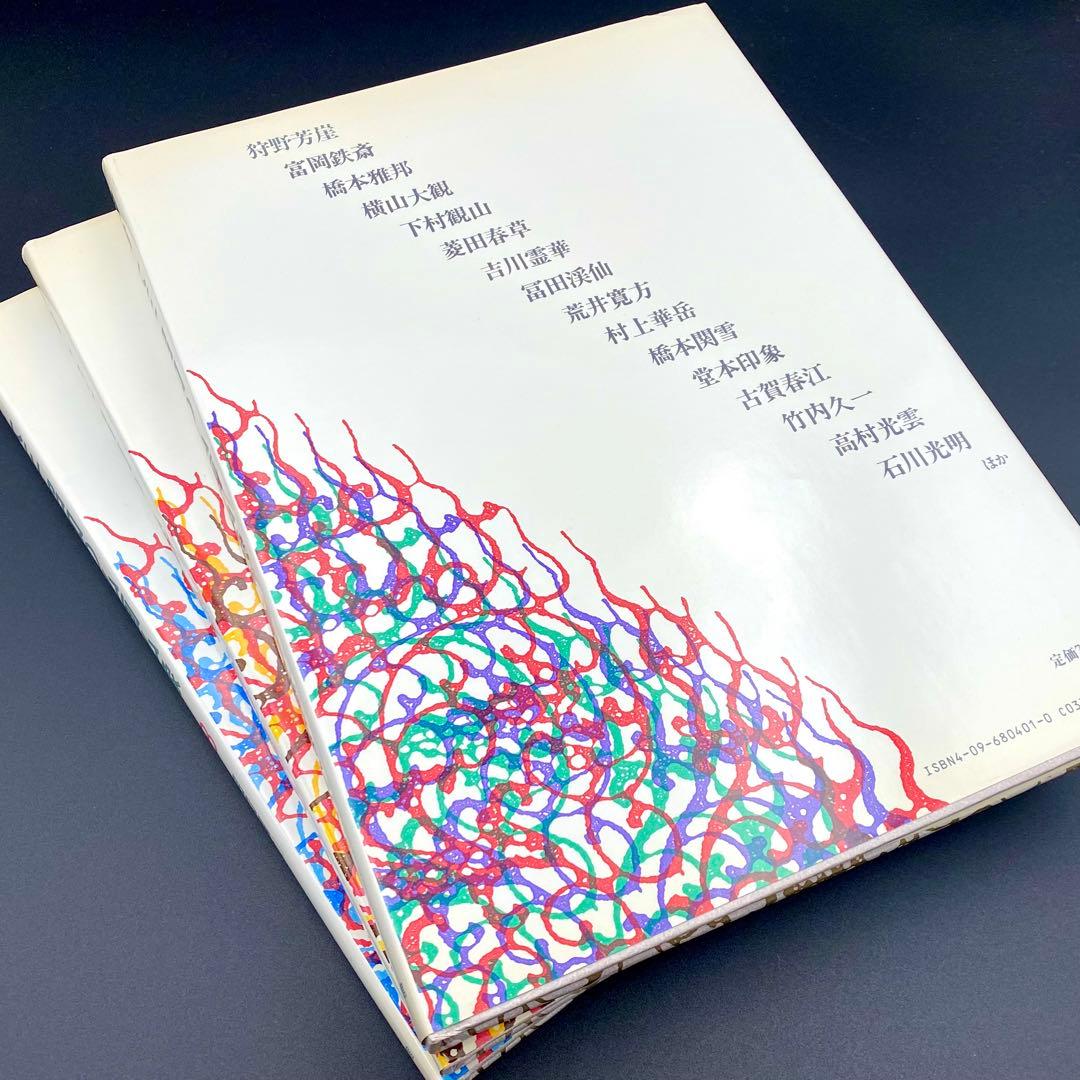 狩野芳崖
富岡鉄斎
橋本雅邦
横山大観
下村観山
菱田春草
吉川霊華
冨田渓仙
荒井寛方
村上華岳
橋本関雪
堂本印象
古賀春江
竹内久一
高村光雲
石川光明
ほか
定価
ISBN4-09-680401-0 C03